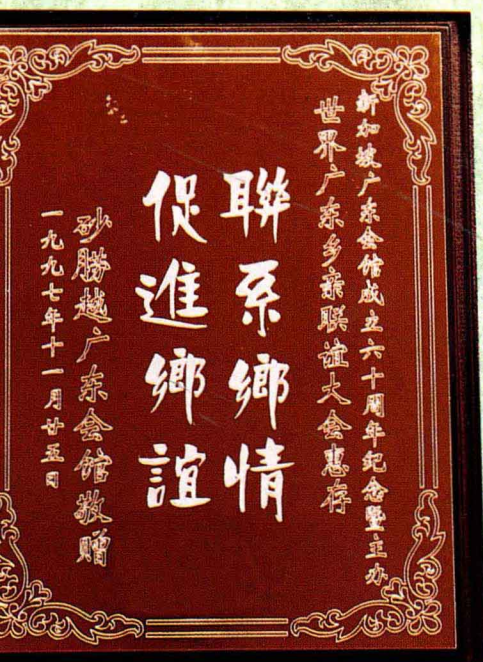 新加坡广东会馆成立六十周年纪念暨主办
世界广东乡亲联谊大会惠存
聯系鄉情
促進鄉誼
砂勝越广东会馆敬赠
一九九七年十一月廿五日